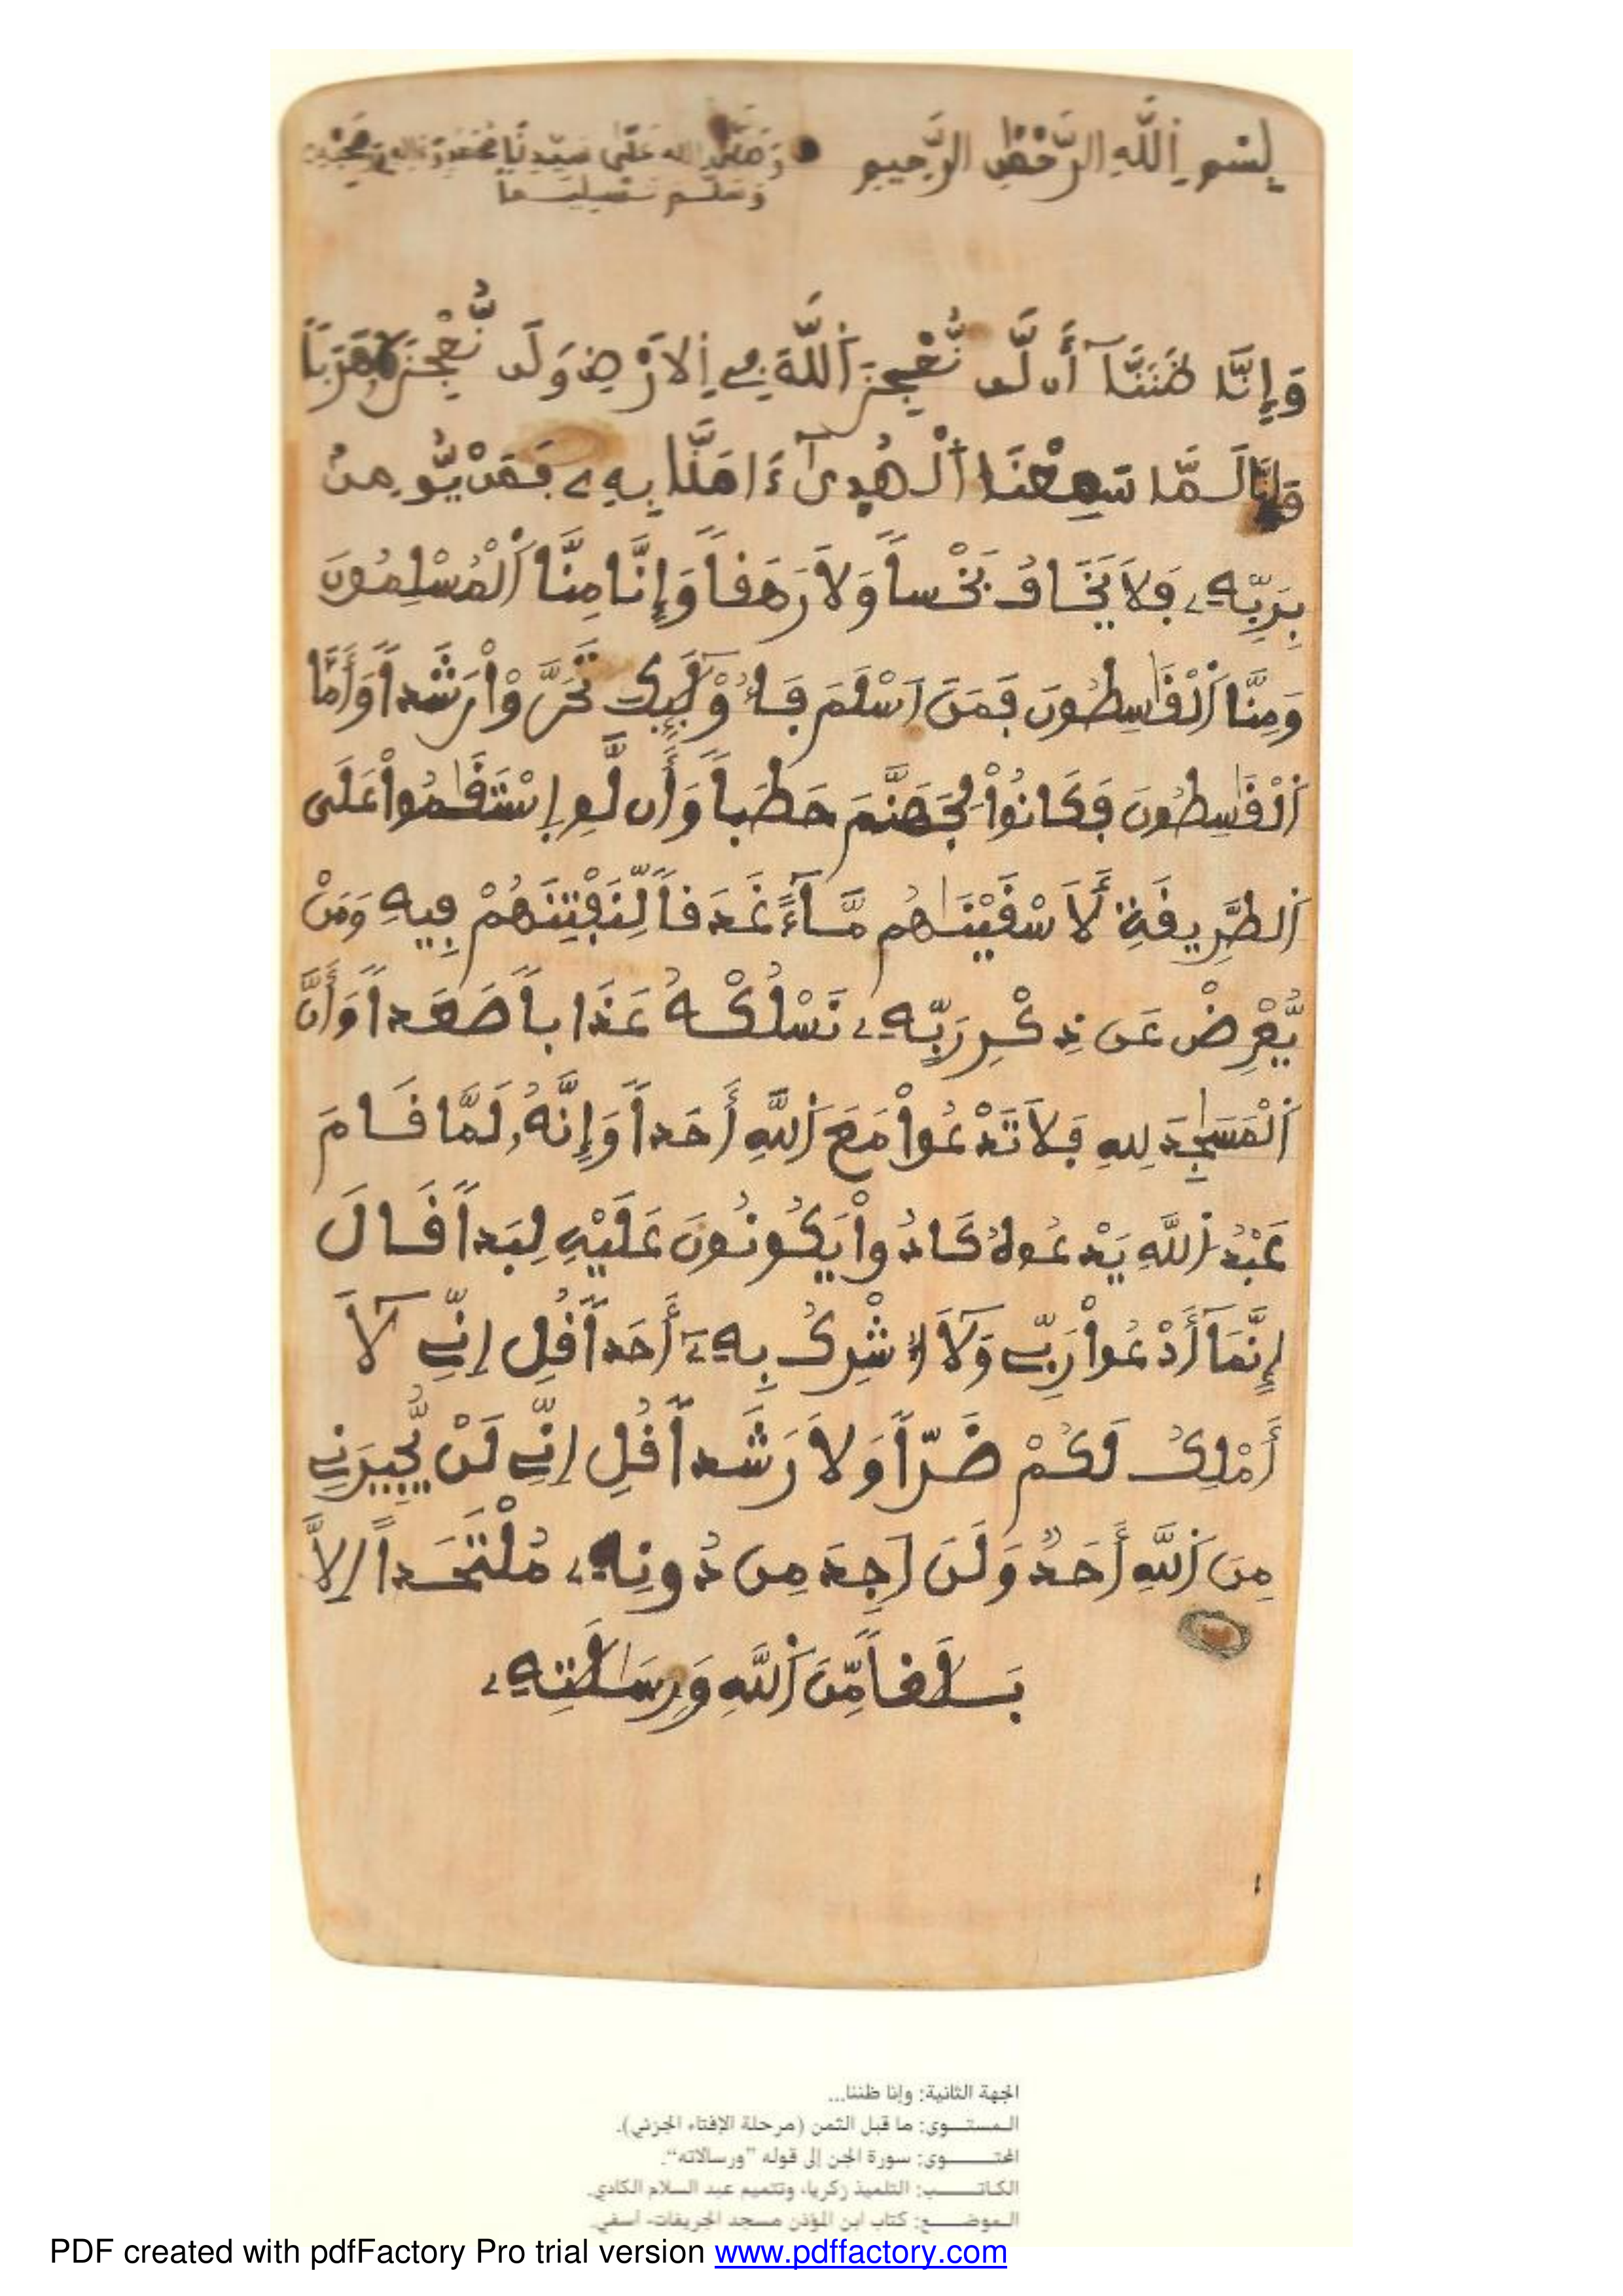 بِسْمِ اِللَّهِ الرَّحْمَٰنِ الرَّحِيمِ وَصَلَّى اللهُ عَلَىٰ سَيِّدِنَا مُحَمَّدٍ وَءَالِهِ وَصَحْبِهِ
وَسَلَّمَ تَسْلِيمًا
وَإِنَّا ظَنَنَّآ أَن لَّن نُّعْجِزَ اَ۬للَّهَ فِے اِ۬لَارْضِ وَلَن نُّعْجِزَهُۥ هَرَباً
وَإِنَّا لَمَّا سَمِعْنَا اَ۬لْهُد۪ىٰٓ ءَامَنَّا بِهِۦ فَمَنْ يُّومِنۢ
بِرَبِّهِۦ فَلَا يَخَافُ بَخْساً وَلَا رَهَقاً وَإِنَّا مِنَّا اَ۬لْمُسْلِمُونَ
وَمِنَّا اَ۬لْقَٰسِطُونَ فَمَنَ اَسْلَمَ فَأُوْلَٰٓئِكَ تَحَرَّوْاْ رَشَداً وَأَمَّا
اَ۬لْقَٰسِطُونَ فَكَانُواْ لِجَهَنَّمَ حَطَباً وَأَن لَّوِ اِ۪سْتَقَٰمُواْ عَلَى
اَ۬لطَّرِيقَةِ لَأَسْقَيْنَٰهُم مَّآءً غَدَقاً لِّنَفْتِنَهُمْ فِيهِ وَمَنْ
يُّعْرِضْ عَن ذِكْرِ رَبِّهِۦ نَسْلُكْهُ عَذَاباً صَعَداً وَأَنَّ
اَ۬لْمَسَٰجِدَ لِلهِ فَلَا تَدْعُواْ مَعَ اَ۬للَّهِ أَحَداً وَإِنَّهُۥ لَمَّا قَامَ
عَبْدُ اُ۬للَّهِ يَدْعُوهُ كَادُواْ يَكُونُونَ عَلَيْهِ لِبَداً قَالَ
إِنَّمَآ أَدْعُواْ رَبِّے وَلَآ أُشْرِكُ بِهِۦٓ أَحَداً قُلِ اِنِّے لَآ
أَمْلِكُ لَكُمْ ضَرّاً وَلَا رَشَداً قُلِ اِنِّے لَنْ يُّجِيرَنِے
مِنَ اَ۬للَّهِ أَحَدٌ وَلَنَ اَجِدَ مِن دُونِهِۦ مُلْتَحَداً اِلَّا
بَلَٰغاً مِّنَ اَ۬للَّهِ وَرِسَٰلَٰتِهِۦ
الجهة الثانية: وإنا ظننا...
المستوى: ما قبل الثمن (مرحلة الإفتاء الجزئي).
المحتوى: سورة الجن إلى قوله "ورسالاته".
الكاتب: التلميذ زكرياء وتتميم عبد السلام الكادي.
الموضع: كتاب ابن المؤذن مسجد الجريفات- آسفي.
PDF created with pdfFactory Pro trial version www.pdffactory.com